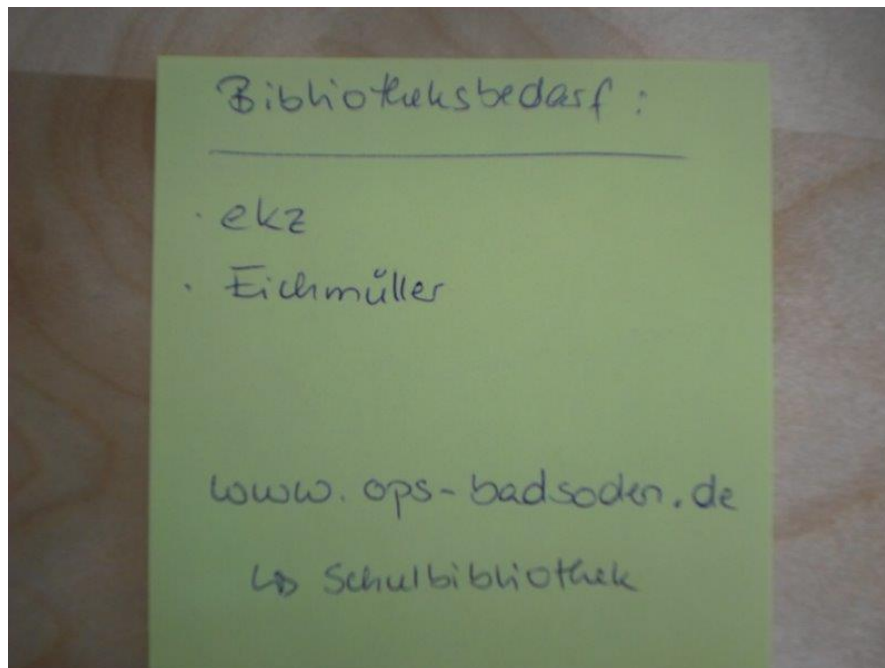 Bibliotheksbedarf :
· ekz
· Eichmüller
www.ops-badsoden.de
↳ Schulbibliothek